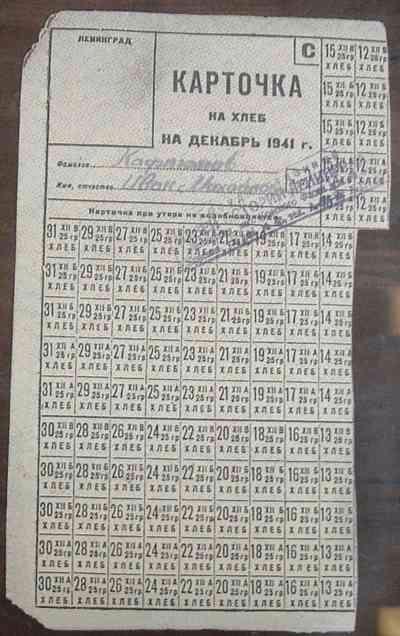 ЛЕНИНГРАД
С
КАРТОЧКА
НА ХЛЕБ
НА ДЕКАБРЬ 1941 г.
Фамилия
Имя, отчество Иван Михайлович
Карточка при утере не возобновляется
15 XII В 25 гр 12 XII В 25 гр
ХЛЕБ ХЛЕБ
15 XII Б 25 гр 12 XII Б 25 гр
ХЛЕБ ХЛЕБ
15 XII Б 25 гр 12 XII Б 25 гр
ХЛЕБ ХЛЕБ
12 XII А
ХЛЕБ
12
ХЛЕБ
31 XII В 25 гр 29 XII В 25 гр 27 XII В 25 гр 25 XII В 25 гр 23 21 19 XII В 25 гр 17 XII В 25 гр 14 XII В 25 гр
ХЛЕБ ХЛЕБ ХЛЕБ ХЛЕБ ХЛЕБ ХЛЕБ ХЛЕБ ХЛЕБ ХЛЕБ
31 XII Б 25 гр 29 XII Б 25 гр 27 XII Б 25 гр 25 XII Б 25 гр 23 XII Б 25 гр 21 XII Б 25 гр 19 XII Б 25 гр 17 XII Б 25 гр 14 XII Б 25 гр
ХЛЕБ ХЛЕБ ХЛЕБ ХЛЕБ ХЛЕБ ХЛЕБ ХЛЕБ ХЛЕБ ХЛЕБ
31 XII Б 25 гр 29 XII Б 25 гр 27 XII Б 25 гр 25 XII Б 25 гр 23 XII Б 25 гр 21 XII Б 25 гр 19 XII Б 25 гр 17 XII Б 25 гр 14 XII Б 25 гр
ХЛЕБ ХЛЕБ ХЛЕБ ХЛЕБ ХЛЕБ ХЛЕБ ХЛЕБ ХЛЕБ ХЛЕБ
31 XII А 25 гр 29 XII А 25 гр 27 XII А 25 гр 25 XII А 25 гр 23 XII А 25 гр 21 XII А 25 гр 19 XII А 25 гр 17 XII А 25 гр 14 XII А 25 гр
ХЛЕБ ХЛЕБ ХЛЕБ ХЛЕБ ХЛЕБ ХЛЕБ ХЛЕБ ХЛЕБ ХЛЕБ
31 XII А 25 гр 29 XII А 25 гр 27 XII А 25 гр 25 XII А 25 гр 23 XII А 25 гр 21 XII А 25 гр 19 XII А 25 гр 17 XII А 25 гр 14 XII А 25 гр
ХЛЕБ ХЛЕБ ХЛЕБ ХЛЕБ ХЛЕБ ХЛЕБ ХЛЕБ ХЛЕБ ХЛЕБ
30 XII В 25 гр 28 XII В 25 гр 26 XII В 25 гр 24 XII В 25 гр 22 XII В 25 гр 20 XII В 25 гр 18 XII В 25 гр 16 XII В 25 гр 13 XII В 25 гр
ХЛЕБ ХЛЕБ ХЛЕБ ХЛЕБ ХЛЕБ ХЛЕБ ХЛЕБ ХЛЕБ ХЛЕБ
30 XII Б 25 гр 28 XII Б 25 гр 26 XII Б 25 гр 24 XII Б 25 гр 22 XII Б 25 гр 20 XII Б 25 гр 18 XII Б 25 гр 16 XII Б 25 гр 13 XII Б 25 гр
ХЛЕБ ХЛЕБ ХЛЕБ ХЛЕБ ХЛЕБ ХЛЕБ ХЛЕБ ХЛЕБ ХЛЕБ
30 XII Б 25 гр 28 XII Б 25 гр 26 XII Б 25 гр 24 XII Б 25 гр 22 XII Б 25 гр 20 XII Б 25 гр 18 XII Б 25 гр 16 XII Б 25 гр 13 XII Б 25 гр
ХЛЕБ ХЛЕБ ХЛЕБ ХЛЕБ ХЛЕБ ХЛЕБ ХЛЕБ ХЛЕБ ХЛЕБ
30 XII А 25 гр 28 XII А 25 гр 26 XII А 25 гр 24 XII А 25 гр 22 XII А 25 гр 20 XII А 25 гр 18 XII А 25 гр 16 XII А 25 гр 13 XII А 25 гр
ХЛЕБ ХЛЕБ ХЛЕБ ХЛЕБ ХЛЕБ ХЛЕБ ХЛЕБ ХЛЕБ ХЛЕБ
30 XII А 25 гр 28 XII А 25 гр 26 XII А 25 гр 24 XII А 25 гр 22 XII А 25 гр 20 XII А 25 гр 18 XII А 25 гр 16 XII А 25 гр 13 XII А 25 гр
ХЛЕБ ХЛЕБ ХЛЕБ ХЛЕБ ХЛЕБ ХЛЕБ ХЛЕБ ХЛЕБ ХЛЕБ